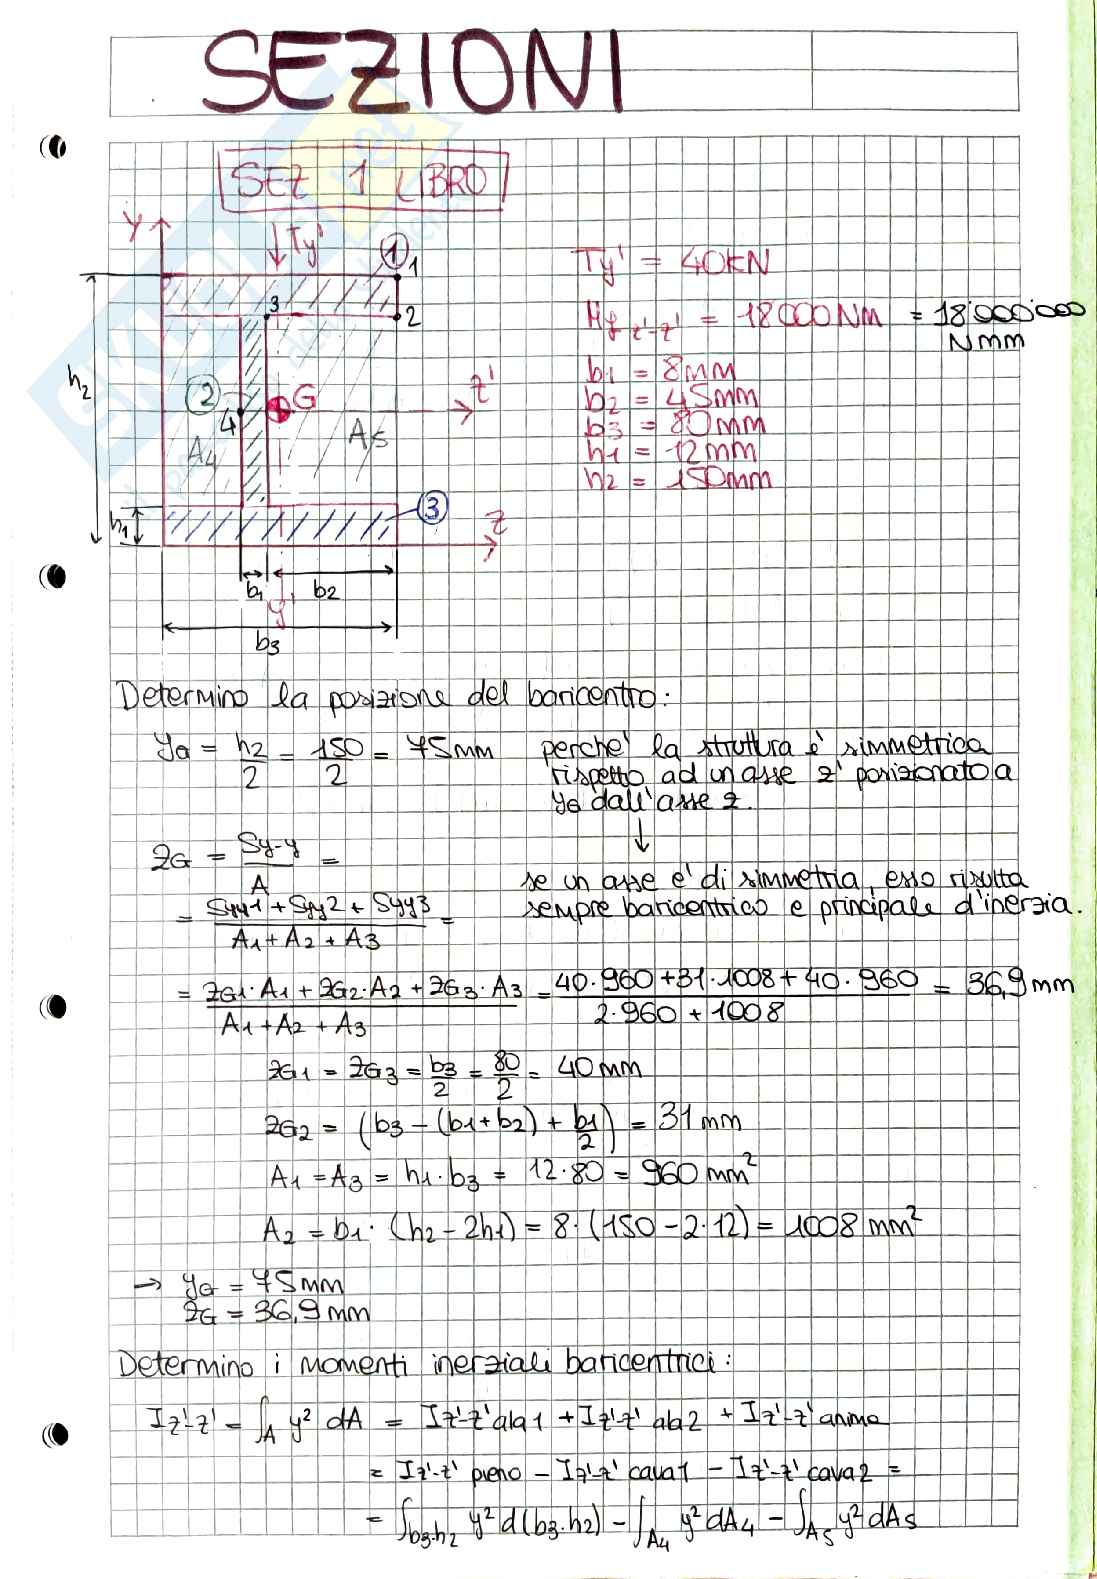 SEZIONI
SEZ 1 LIBRO
Y
Ty'
1
1
2
3
Ty' = 40KN
Mf z'-z' = 18000 Nm = 18'000'000
Nmm
h2
z'
G
2
4
A4
A5
b1 = 8mm
b2 = 45mm
b3 = 80mm
h1 = 12mm
h2 = 150mm
h1
3
z
b1
b2
y'
b3
Determino la posizione del baricentro:
yG = h2/2 = 150/2 = 75mm perche' la struttura è simmetrica
rispetto ad un asse z' posizionato a
yG dall'asse z.
↓
zG = Sy-y/A =
se un asse e' di simmetria, esso risulta
sempre baricentrico e principale d'inerzia.
= Syy1 + Syy2 + Syy3/A1 + A2 + A3 =
= zG1·A1 + zG2·A2 + zG3·A3/A1 + A2 + A3 = 40·960+31·1008+40·960/2·960+1008 = 36,9mm
zG1 = zG3 = b3/2 = 80/2 = 40mm
zG2 = (b3 - (b1+b2) + b1/2) = 31mm
A1 = A3 = h1·b3 = 12·80 = 960 mm²
A2 = b1·(h2-2h1) = 8·(150-2·12) = 1008 mm²
→ yG = 75mm
zG = 36,9mm
Determino i momenti inerziali baricentrici:
Iz'-z' = ∫A y² dA = Iz'-z' ala1 + Iz'-z' ala2 + Iz'-z' anima
= Iz'-z' pieno - Iz'-z' cava1 - Iz'-z' cava2 =
= ∫b3·h2 y² d(b3·h2) - ∫A4 y² dA4 - ∫A5 y² dA5